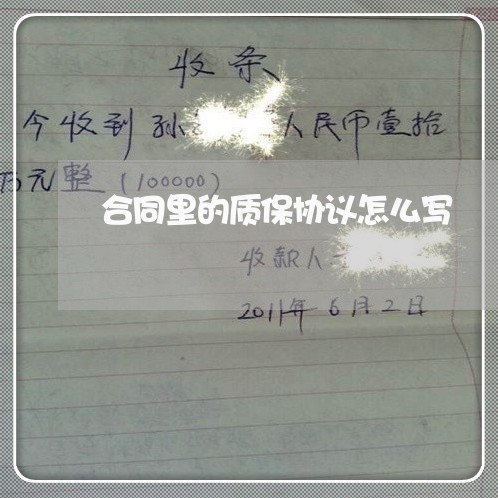 收条
今收到孙 人民币壹拾
万元整（100000）
合同里的质保协议怎么写
收款人
2011年6月2日